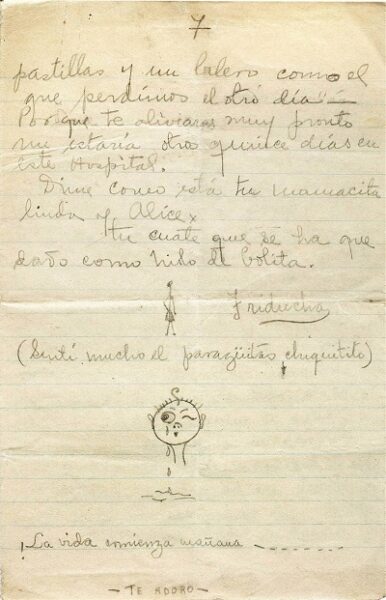 7
pastillas y un balero como el
que perdimos el otro día —
Porque te aliviaras muy pronto
me estaría otros quince días en
este Hospital.
Dime como está tu mamacita
linda y Alice.
Tu cuate que se ha que
dado como hilo de bolita.
Friducha
(Sentí mucho el paragüitas chiquitito)
¡La vida comienza mañana - - - - - - -
— TE ADORO —